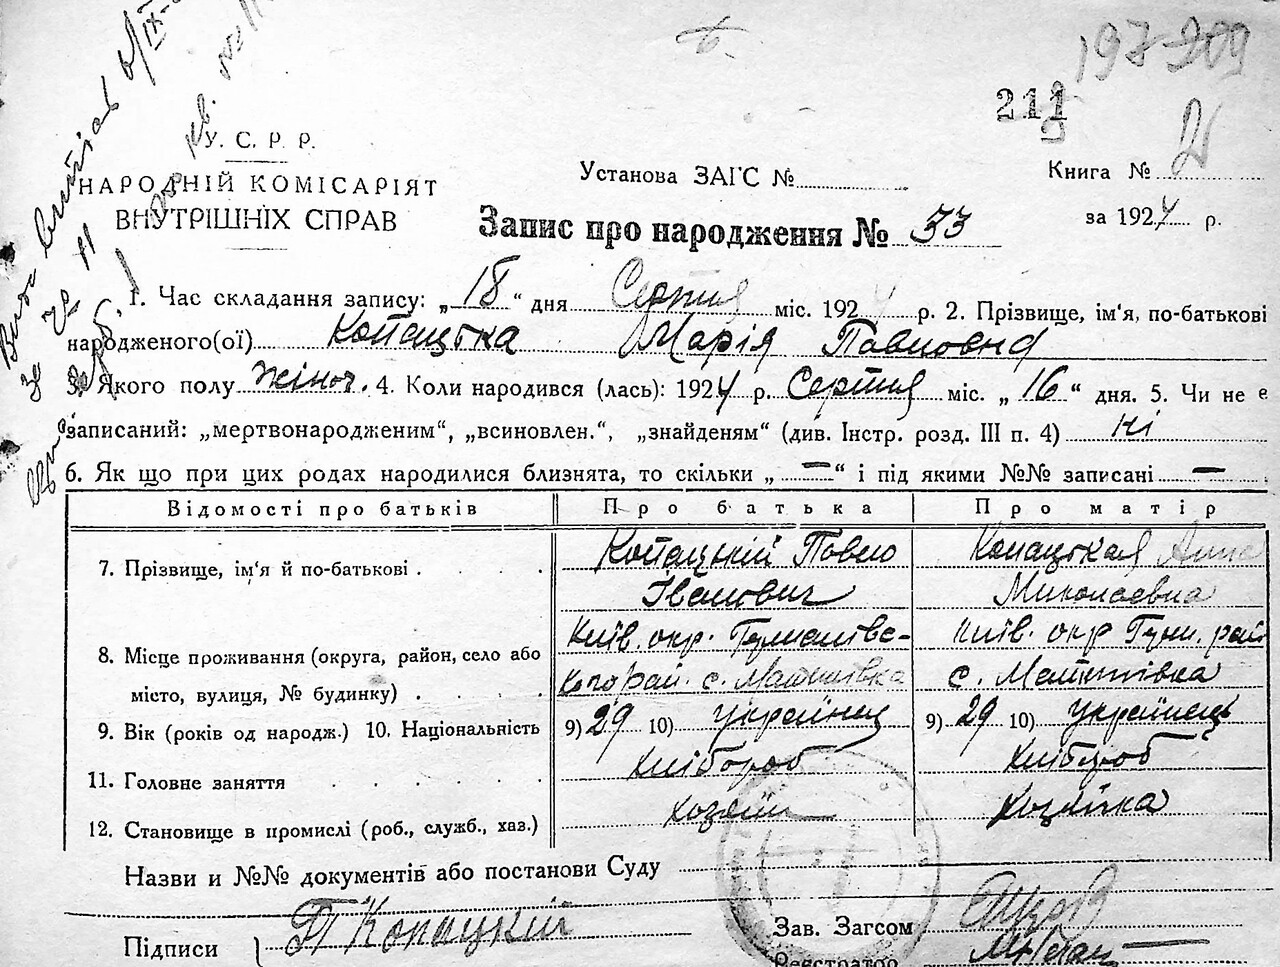 197-209
211
2
У. С. Р. Р.
НАРОДНІЙ КОМІСАРІЯТ
ВНУТРІШНІХ СПРАВ
Установа ЗАГС №
Книга № 2
Запис про народження № 33
за 1924 р.
1. Час складання запису: „18“ дня Серпня міс. 1924 р. 2. Прізвище, ім'я, по-батькові
народженого(ої) Копацька Марія Павловна
3. Якого полу жіноч. 4. Коли народився (лась): 1924 р. Серпня міс. „16“ дня. 5. Чи не є
записаний: „мертвонародженим“, „всиновлен.“, „знайденям“ (див. Інстр. розд. III п. 4) ні
6. Як що при цих родах народилися близнята, то скільки „—“ і під якими №№ записані —
Відомості про батьків Про батька Про матір
7. Прізвище, ім'я й по-батькові Копацький Павло Копацькая Анна
Іванович Миколаєвна
Київ. окр. Київ. окр
8. Місце проживання (округа, район, село або
рай. с.
місто, вулиця, № будинку) с.
9. Вік (років од народж.) 10. Національність 9) 29 10) українец 9) 29 10) українець
хлібороб хлібороб
11. Головне заняття
хозяїн хозяйка
12. Становище в промислі (роб., служб., хаз.)
Назви и №№ документів або постанови Суду
Підписи П Копацкій
Зав. Загсом
Реєстратор